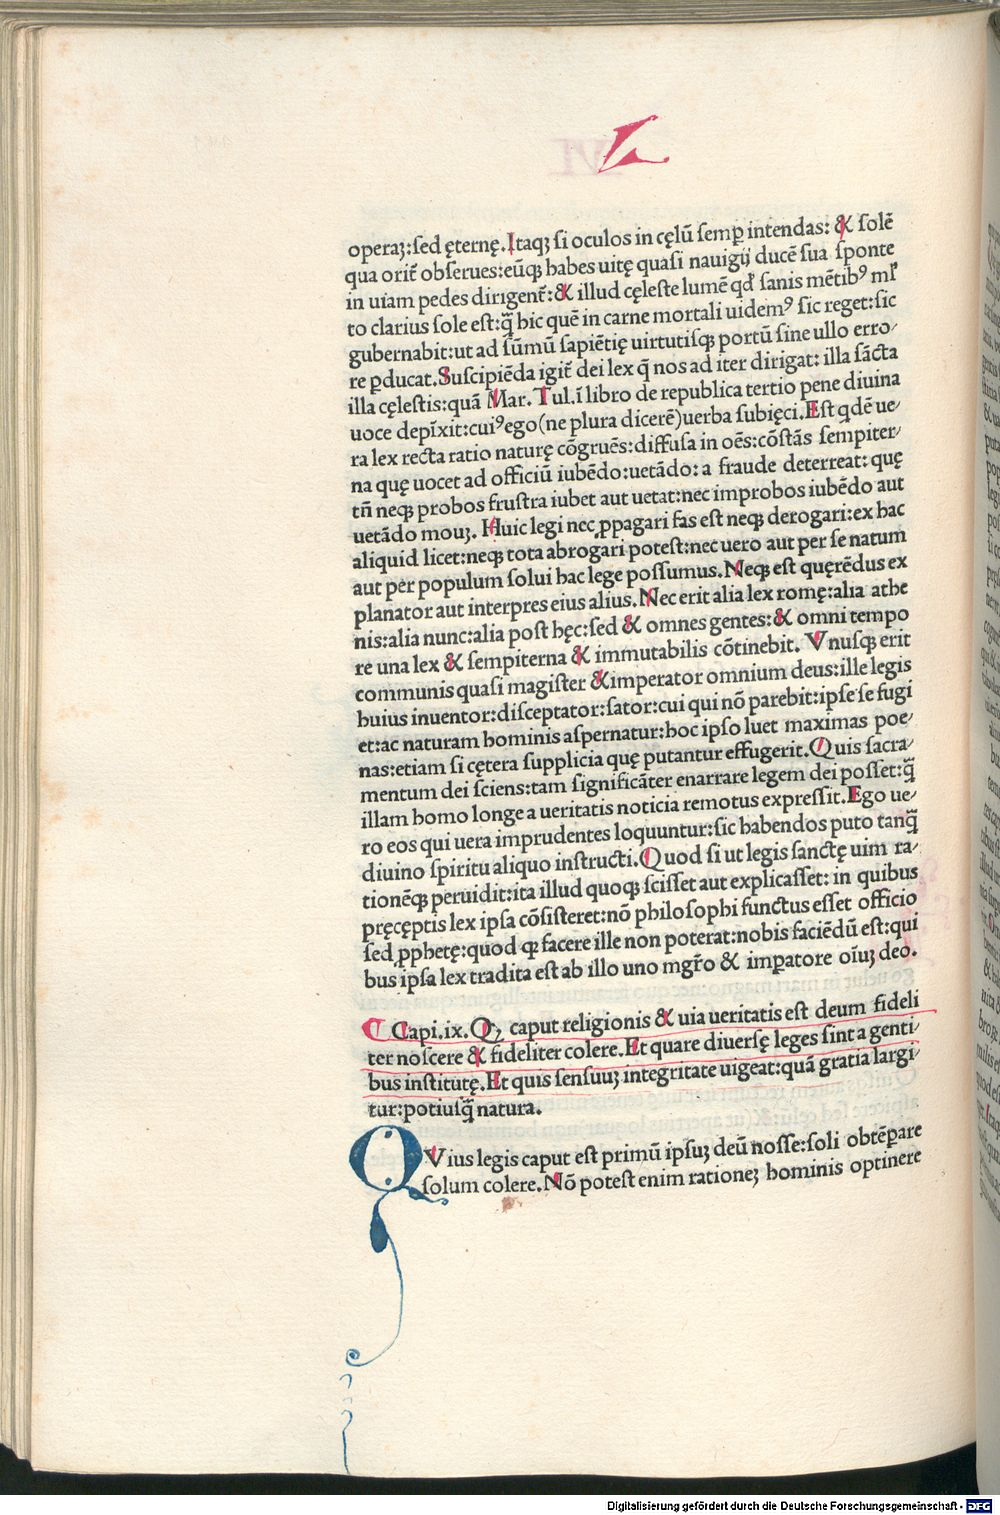 L
operaꝫ:ſed ęternę. Itaqꝫ ſi oculos in cęlū ſemꝑ intendas: & ſolē
qua orit̃ obſerues:eūqꝫ habes uitę quaſi nauigij ducē ſua ſponte
in uiam pedes dirigent̃:& illud cęleſte lumē qd' ſanis mētibꝰ ml'
to clarius ſole eſt:q̃ hic quē in carne mortali uidemꝰ ſic reget:ſic
gubernabit:ut ad ſūmū ſapiētię uirtutiſqꝫ portū ſine ullo erro/
re ꝑducat. Suſcipiēda igit̃ dei lex q̄ nos ad iter dirigat: illa ſācta
illa cęleſtis:quā Mar. Tul.ī libro de republica tertio pene diuina
uoce depīxit:cuiꝰ ego(ne plura dicerē)uerba ſubięci. Eſt qdē ue/
ra lex recta ratio naturę cōgruēs:diffuſa in oēs:cōſtās ſempiter/
na quę uocet ad officiū iubēdo:uetādo: a fraude deterreat: quę
tñ neqꝫ probos fruſtra iubet aut uetat:nec improbos iubēdo aut
uetādo mouꝫ. Huic legi nec ꝓpagari fas eſt neqꝫ derogari:ex hac
aliquid licet:neqꝫ tota abrogari poteſt:nec uero aut per ſe natum
aut per populum ſolui hac lege poſſumus. Neqꝫ eſt quęrēdus ex
planator aut interpres eius alius. Nec erit alia lex romę:alia athe
nis:alia nunc:alia poſt hęc:ſed & omnes gentes:& omni tempo
re una lex & ſempiterna & immutabilis cōtinebit. Vnuſqꝫ erit
communis quaſi magiſter & imperator omnium deus:ille legis
huius inuentor:diſceptator:ſator:cui qui nō parebit:ipſe ſe fugi
et:ac naturam hominis aſpernatur:hoc ipſo luet maximas poe/
nas:etiam ſi cętera ſupplicia quę putantur effugerit. Quis ſacra/
mentum dei ſciens:tam ſignificāter enarrare legem dei poſſet:q̃
illam homo longe a ueritatis noticia remotus expreſſit. Ego ue/
ro eos qui uera imprudentes loquuntur:ſic habendos puto tanq̃
diuino ſpiritu aliquo inſtructi. Quod ſi ut legis ſanctę uim ra/
tionēqꝫ peruidit:ita illud quoqꝫ ſciſſet aut explicaſſet: in quibus
pręceptis lex ipſa cōſiſteret:nō philoſophi functus eſſet officio
ſed ꝓphetę:quod qꝫ facere ille non poterat:nobis faciēdū eſt:qui
bus ipſa lex tradita eſt ab illo uno mgr̃o & imꝑatore oīuꝫ deo.
Capi.ix. Qꝫ caput religionis & uia ueritatis eſt deum fideli
ter noſcere & fideliter colere. Et quare diuerſę leges ſint a genti/
bus inſtitutę. Et quis ſenſuuꝫ integritate uigeat:quā gratia largi/
tur:potiuſq̃ natura.
QVius legis caput eſt primū ipſuꝫ deū noſſe:ſoli obtēꝑare
ſolum colere. Nō poteſt enim rationeꝫ hominis optinere
Digitalisierung gefördert durch die Deutsche Forschungsgemeinschaft - DFG